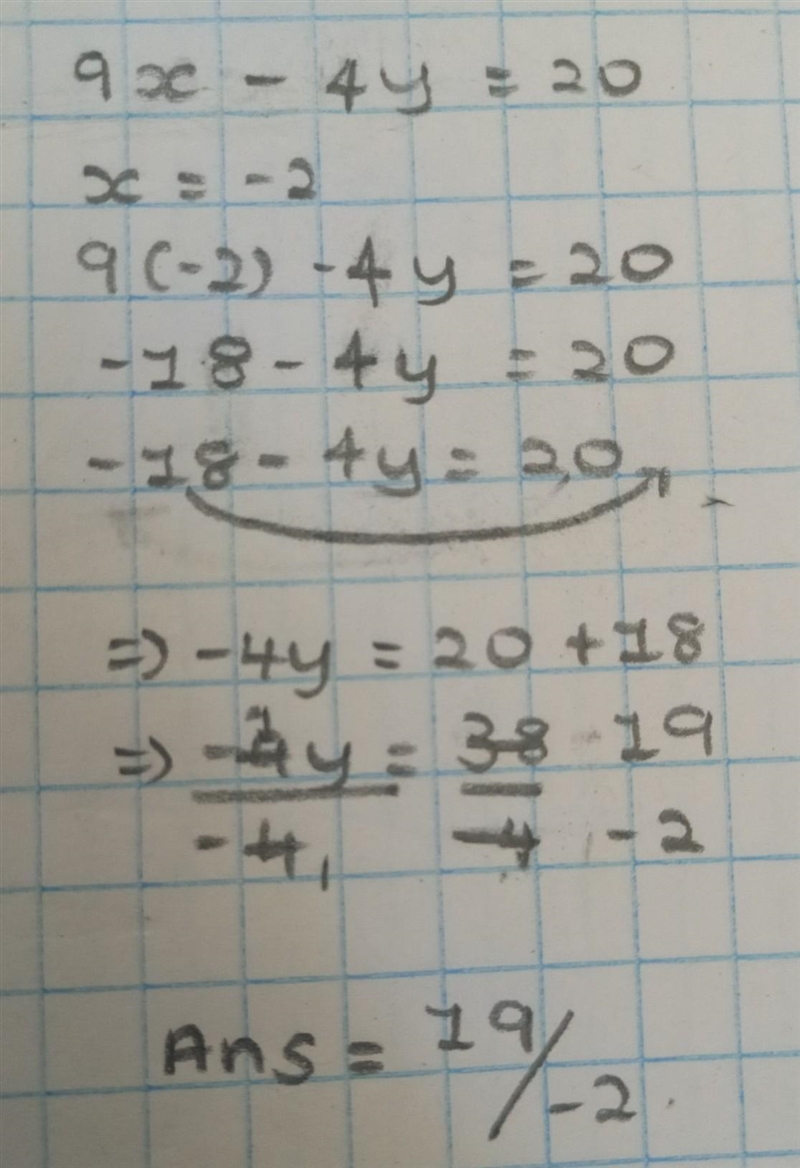 9x - 4y = 20
x = -2
9(-2) - 4y = 20
-18 - 4y = 20
-18 - 4y = 20
=> -4y = 20 + 18
=> -4y = 38 19
-4 1 -4 -2
Ans = 19/-2